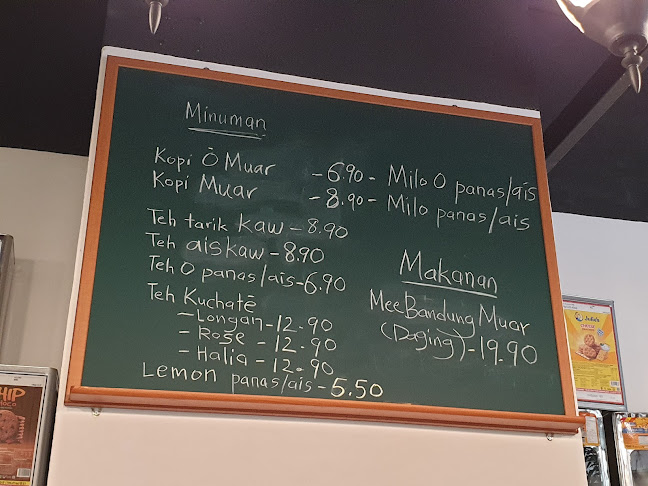 Minuman
Kopi O Muar - 6.90 - Milo O panas/ais
Kopi Muar - 8.90 - Milo panas/ais
Teh tarik kaw - 8.90
Teh ais kaw - 8.90
Teh O panas/ais - 6.90
Teh Kuchatē
- Longan - 12.90
- Rose - 12.90
- Halia - 12.90
Lemon panas/ais - 5.50
Makanan
Mee Bandung Muar
(Daging) - 19.90
Julie's
HIP